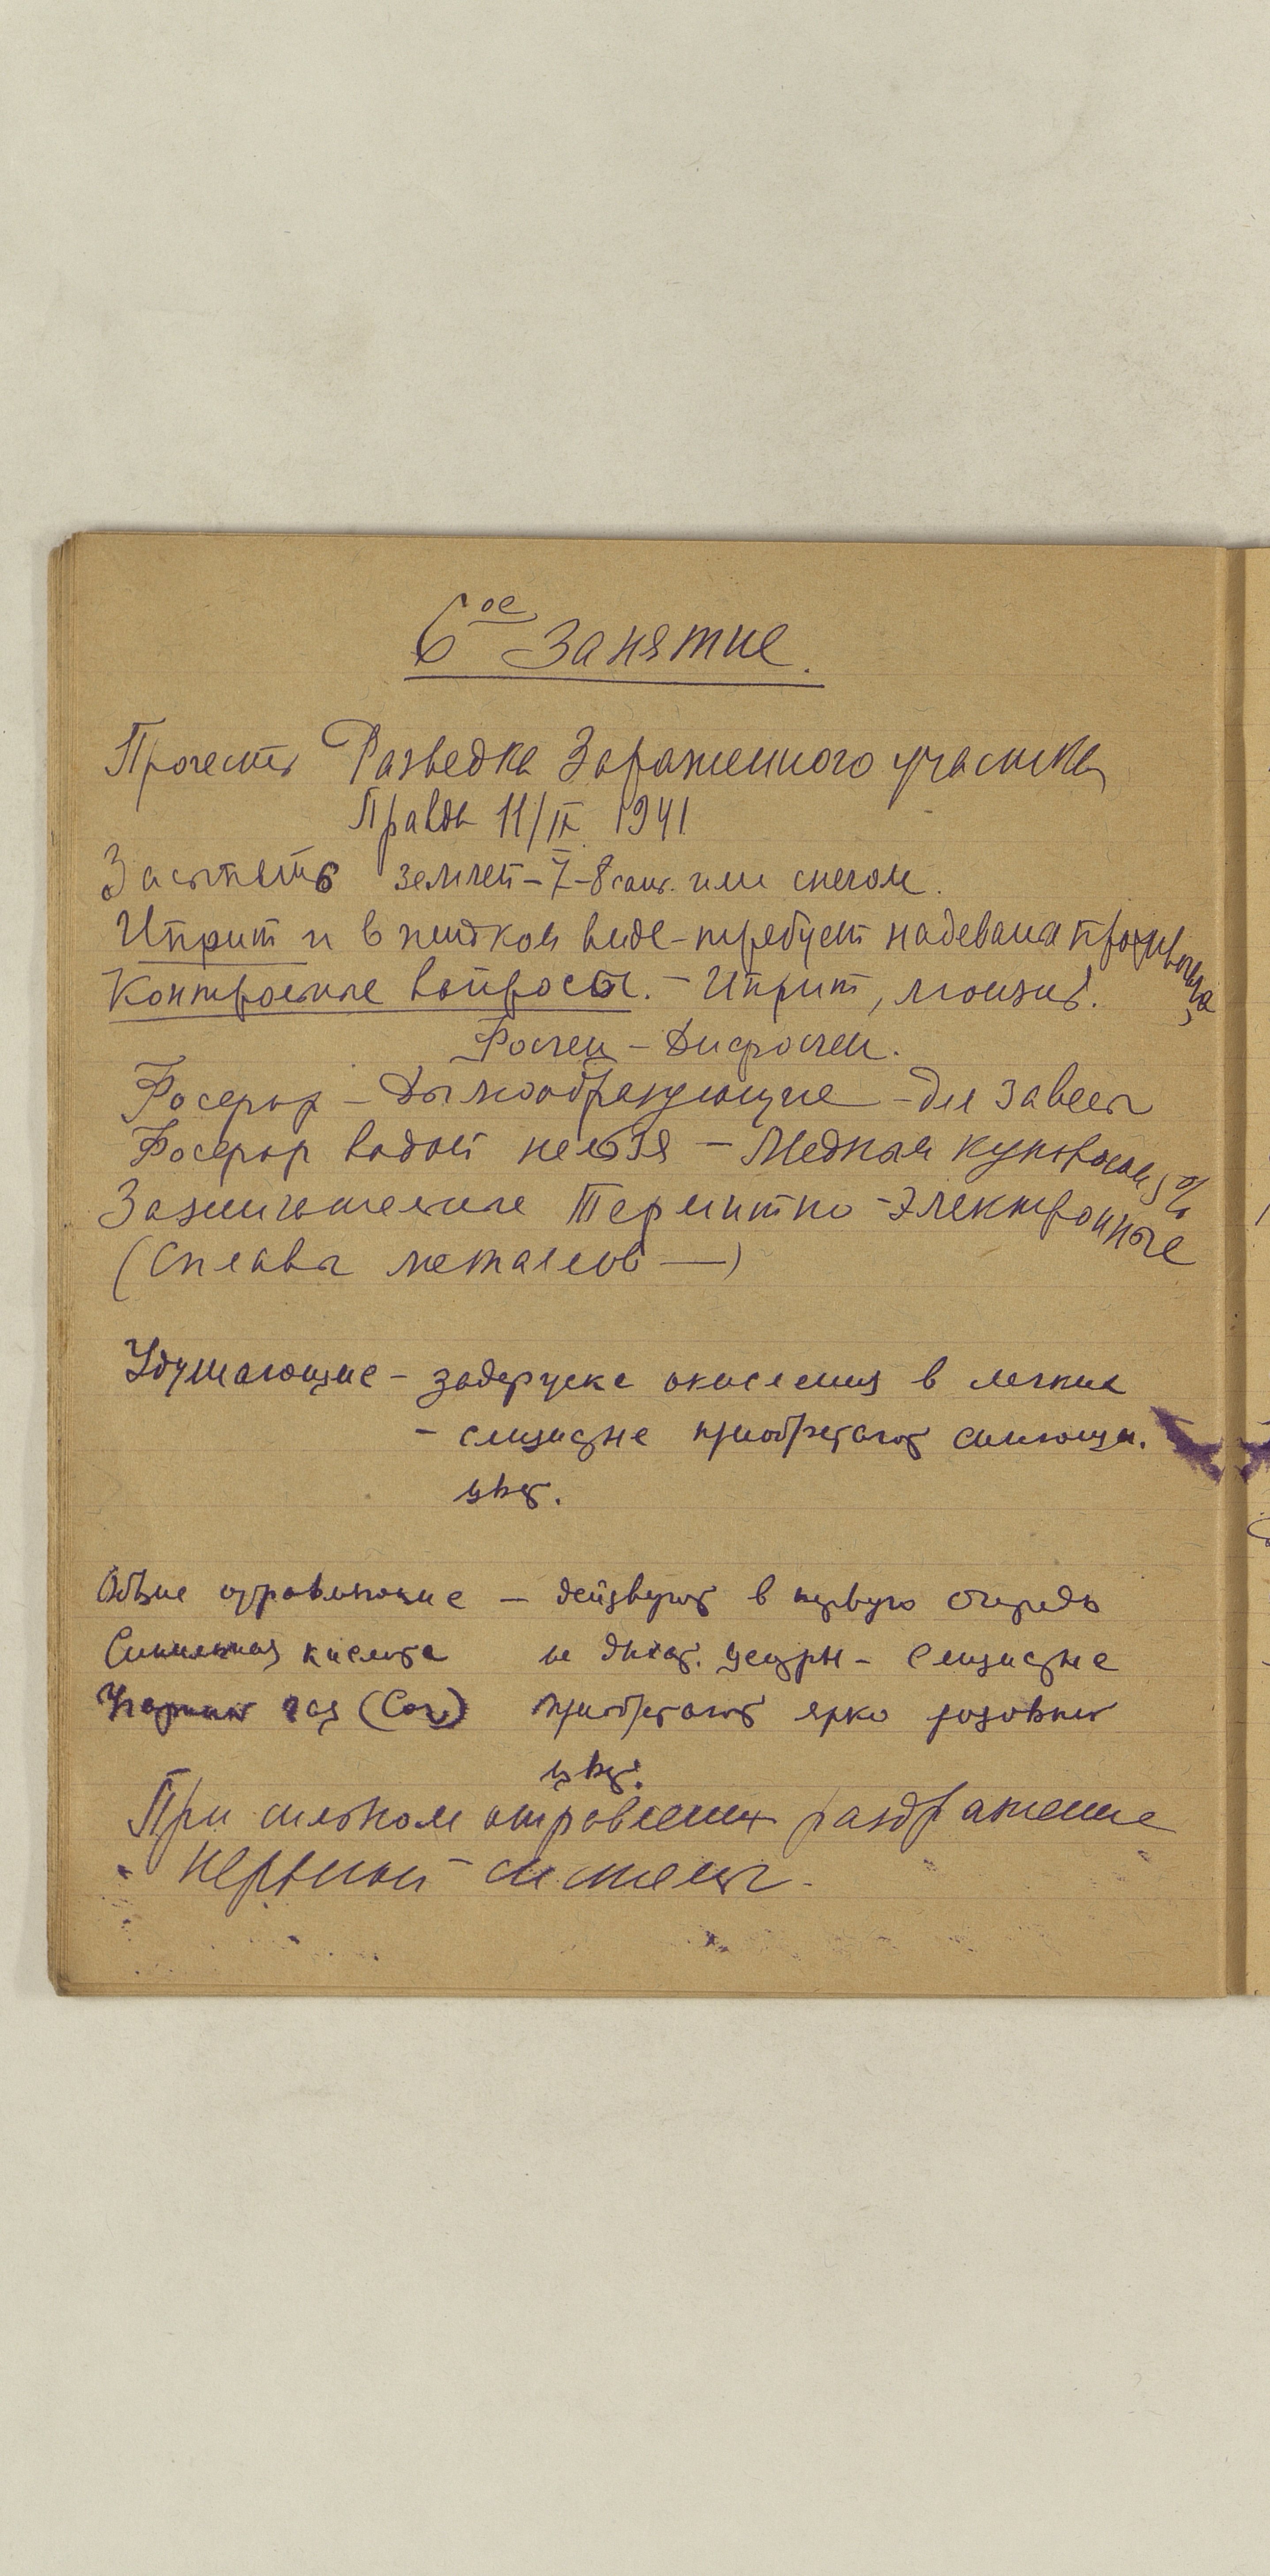 6ое Занятие.
Прочесть Разведка Зараженного участка
Правда 11/IX 1941
Засыпать землей - 7-8 сант. или снегом.
Иприт и в жидком виде - требует надевания противогаза
Контрольные вопросы. - Иприт, люизит.
Фосген - Дифосген.
Фосфор - Дымообразующие - для завесы
Фосфор водой нельзя - Медным купоросом 5%
Зажигательные Термитно - Электронные
(Сплавы металлов —)
Удушающие - задержка окисления в легких
- слизистые приобретают синюшн.
цвет.
Общие отравляющие - действуют в первую очередь
Синильная кислота на дыхат. центры - Слизистые
Угарный газ (СО) приобретают ярко розовый
цвет.
При сильном отравлении раздражение
нервной системы.